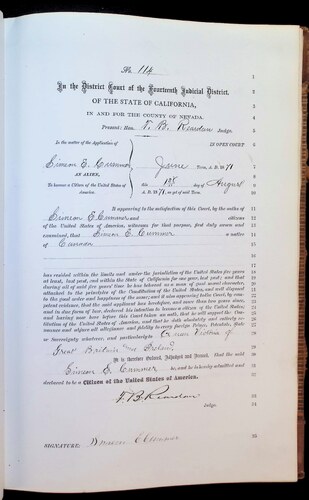 No. 114
In the District Court of the Fourteenth Judicial District,
OF THE STATE OF CALIFORNIA,
IN AND FOR THE COUNTY OF NEVADA.
Present: Hon. T. B. Reardan Judge.
In the matter of the Application of IN OPEN COURT
E. June Term A. D. 1871
AN ALIEN, 
To become a Citizen of the United States of America on 1st day of August
A. D. 1871 as yet of said Term.
It appearing to the satisfaction of this Court, by the oaths of
E. and citizens
of the United States of America, witnesses for that purpose, first duly sworn and
examined, that E. a native
of Canada
has resided within the limits and under the jurisdiction of the United States five years
at least, last past, and within the State of California for one year, last past; and that
during all of said five years' time he has behaved as a man of good moral character,
attached to the principles of the Constitution of the United States, and well disposed
to the good order and happiness of the same; and it also appearing to the Court, by com-
petent evidence, that the said applicant has heretofore, and more than two years since,
and in due form of law, declared his intention to become a citizen of the United States,
and having now here before this Court taken an oath, that he will support the Con-
stitution of the United States of America, and that he doth absolutely and entirely re-
nounce and abjure all allegiance and fidelity to every foreign Prince, Potentate, State
or Sovereignty whatever, and particularly to Queen Victoria of
Great Britain and Ireland
It is therefore Ordered, Adjudged and Decreed, That the said
E. be and he is hereby admitted and
declared to be a Citizen of the United States of America.
T. B. Reardan
Judge.
SIGNATURE: E